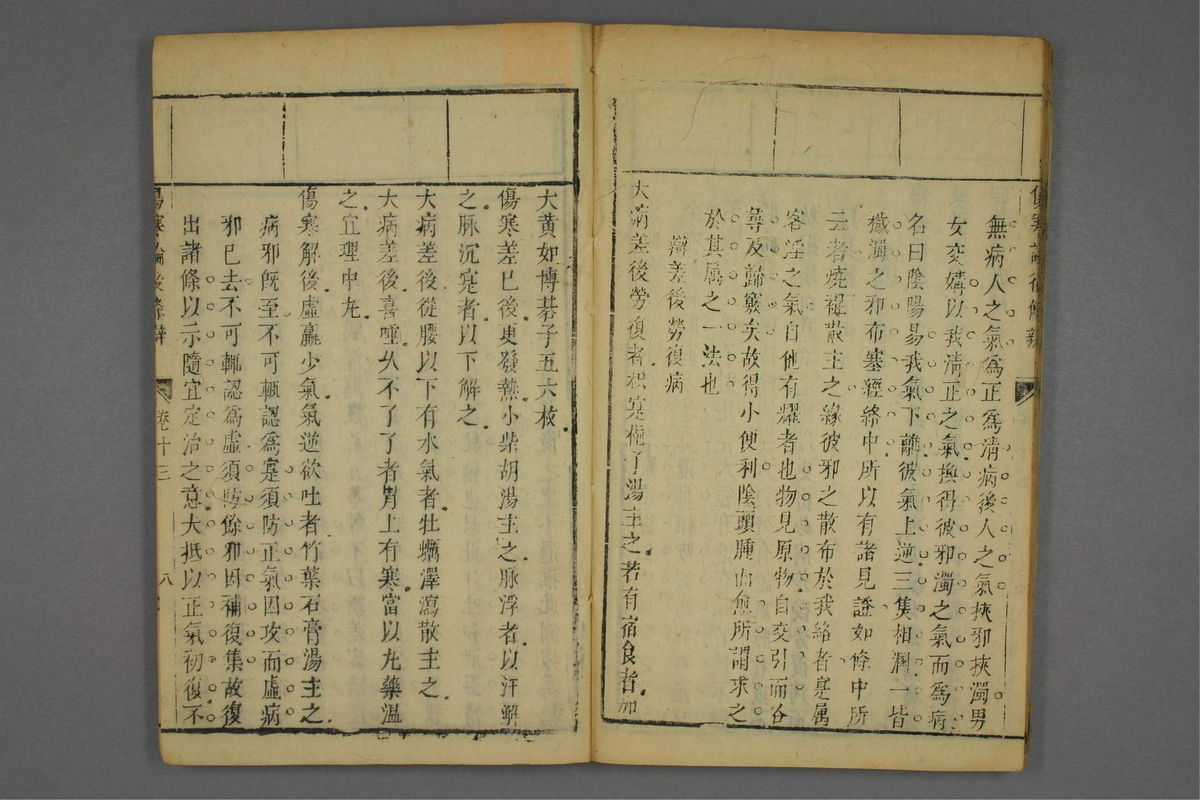 傷寒論後條辨
無病人之氣爲正爲淸病後人之氣挾邪挾濁男
女交媾以我淸正之氣換得彼邪濁之氣而爲病
名曰陰陽易我氣下離彼氣上逆三焦相溷一皆
穢濁之邪布塞經絡中所以有諸見證如條中所
云者燒裩散主之緣彼邪之散布於我絡者寔属
客淫之氣自他有耀者也物見原物自交引而各
尋及歸竅矣故得小便利陰頭腫而愈所謂求之
於其属之一法也
辨差後勞復病
大病差後勞復者枳寔梔子湯主之若有宿食者加
大黃如博碁子五六枚
傷寒差已後更發熱小柴胡湯主之脉浮者以汗解
之脉沉寔者以下解之
大病差後從腰以下有水氣者牡蠣澤瀉散主之
大病差後喜唾久不了了者胃上有寒當以丸藥溫
之宜理中丸
傷寒解後虛羸少氣氣逆欲吐者竹葉石膏湯主之
病邪旣至不可輒認爲寔須防正氣因攻而虛病
邪已去不可輒認爲虛須防餘邪因補復集故復
出諸條以示隨宜定治之意大抵以正氣初復不
傷寒論後條辨
卷十三
八